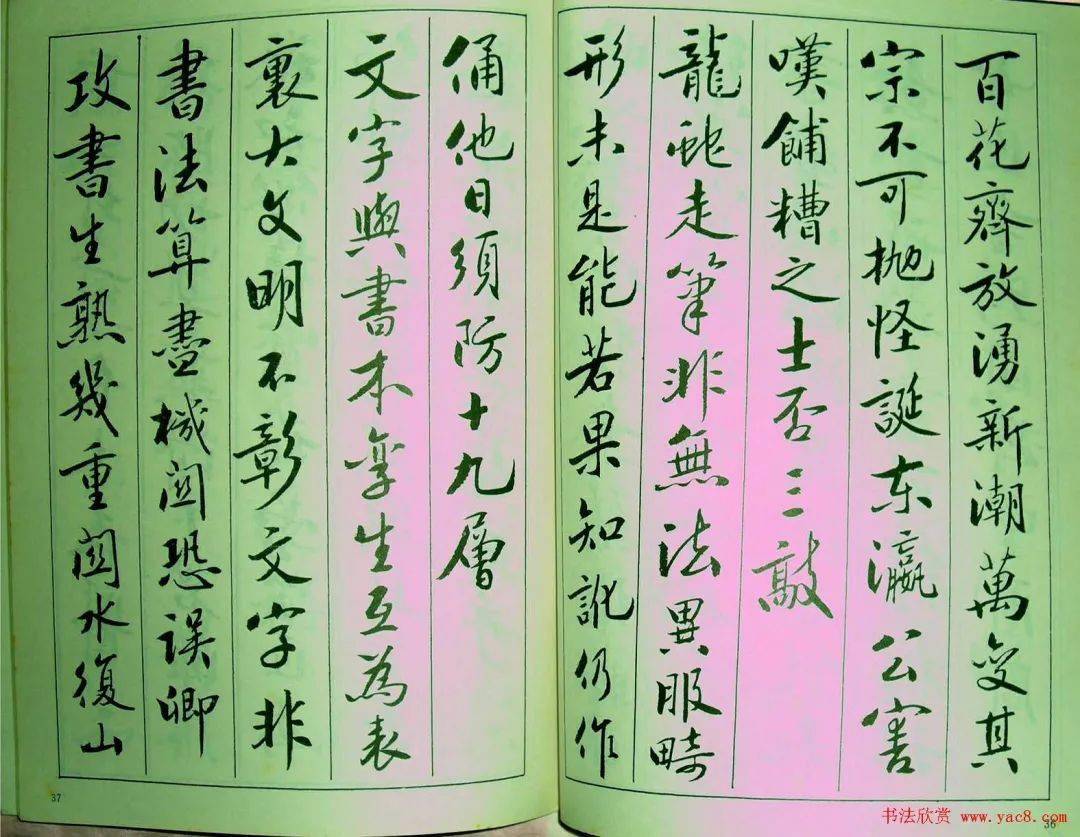 百花齊放湧新潮萬变其
宗不可抛怪誕东瀛公害
嘆餔糟之士否三敲
龍蛇走筆非無法異服畸
形未是能若果知訛仍作
俑他日須防十九層
文字與書本孪生互為表
裏大文明不彰文字非
書法算盡機関恐误卿
攻書生熟幾重関水復山
37
36
书法欣赏 www.yac8.com